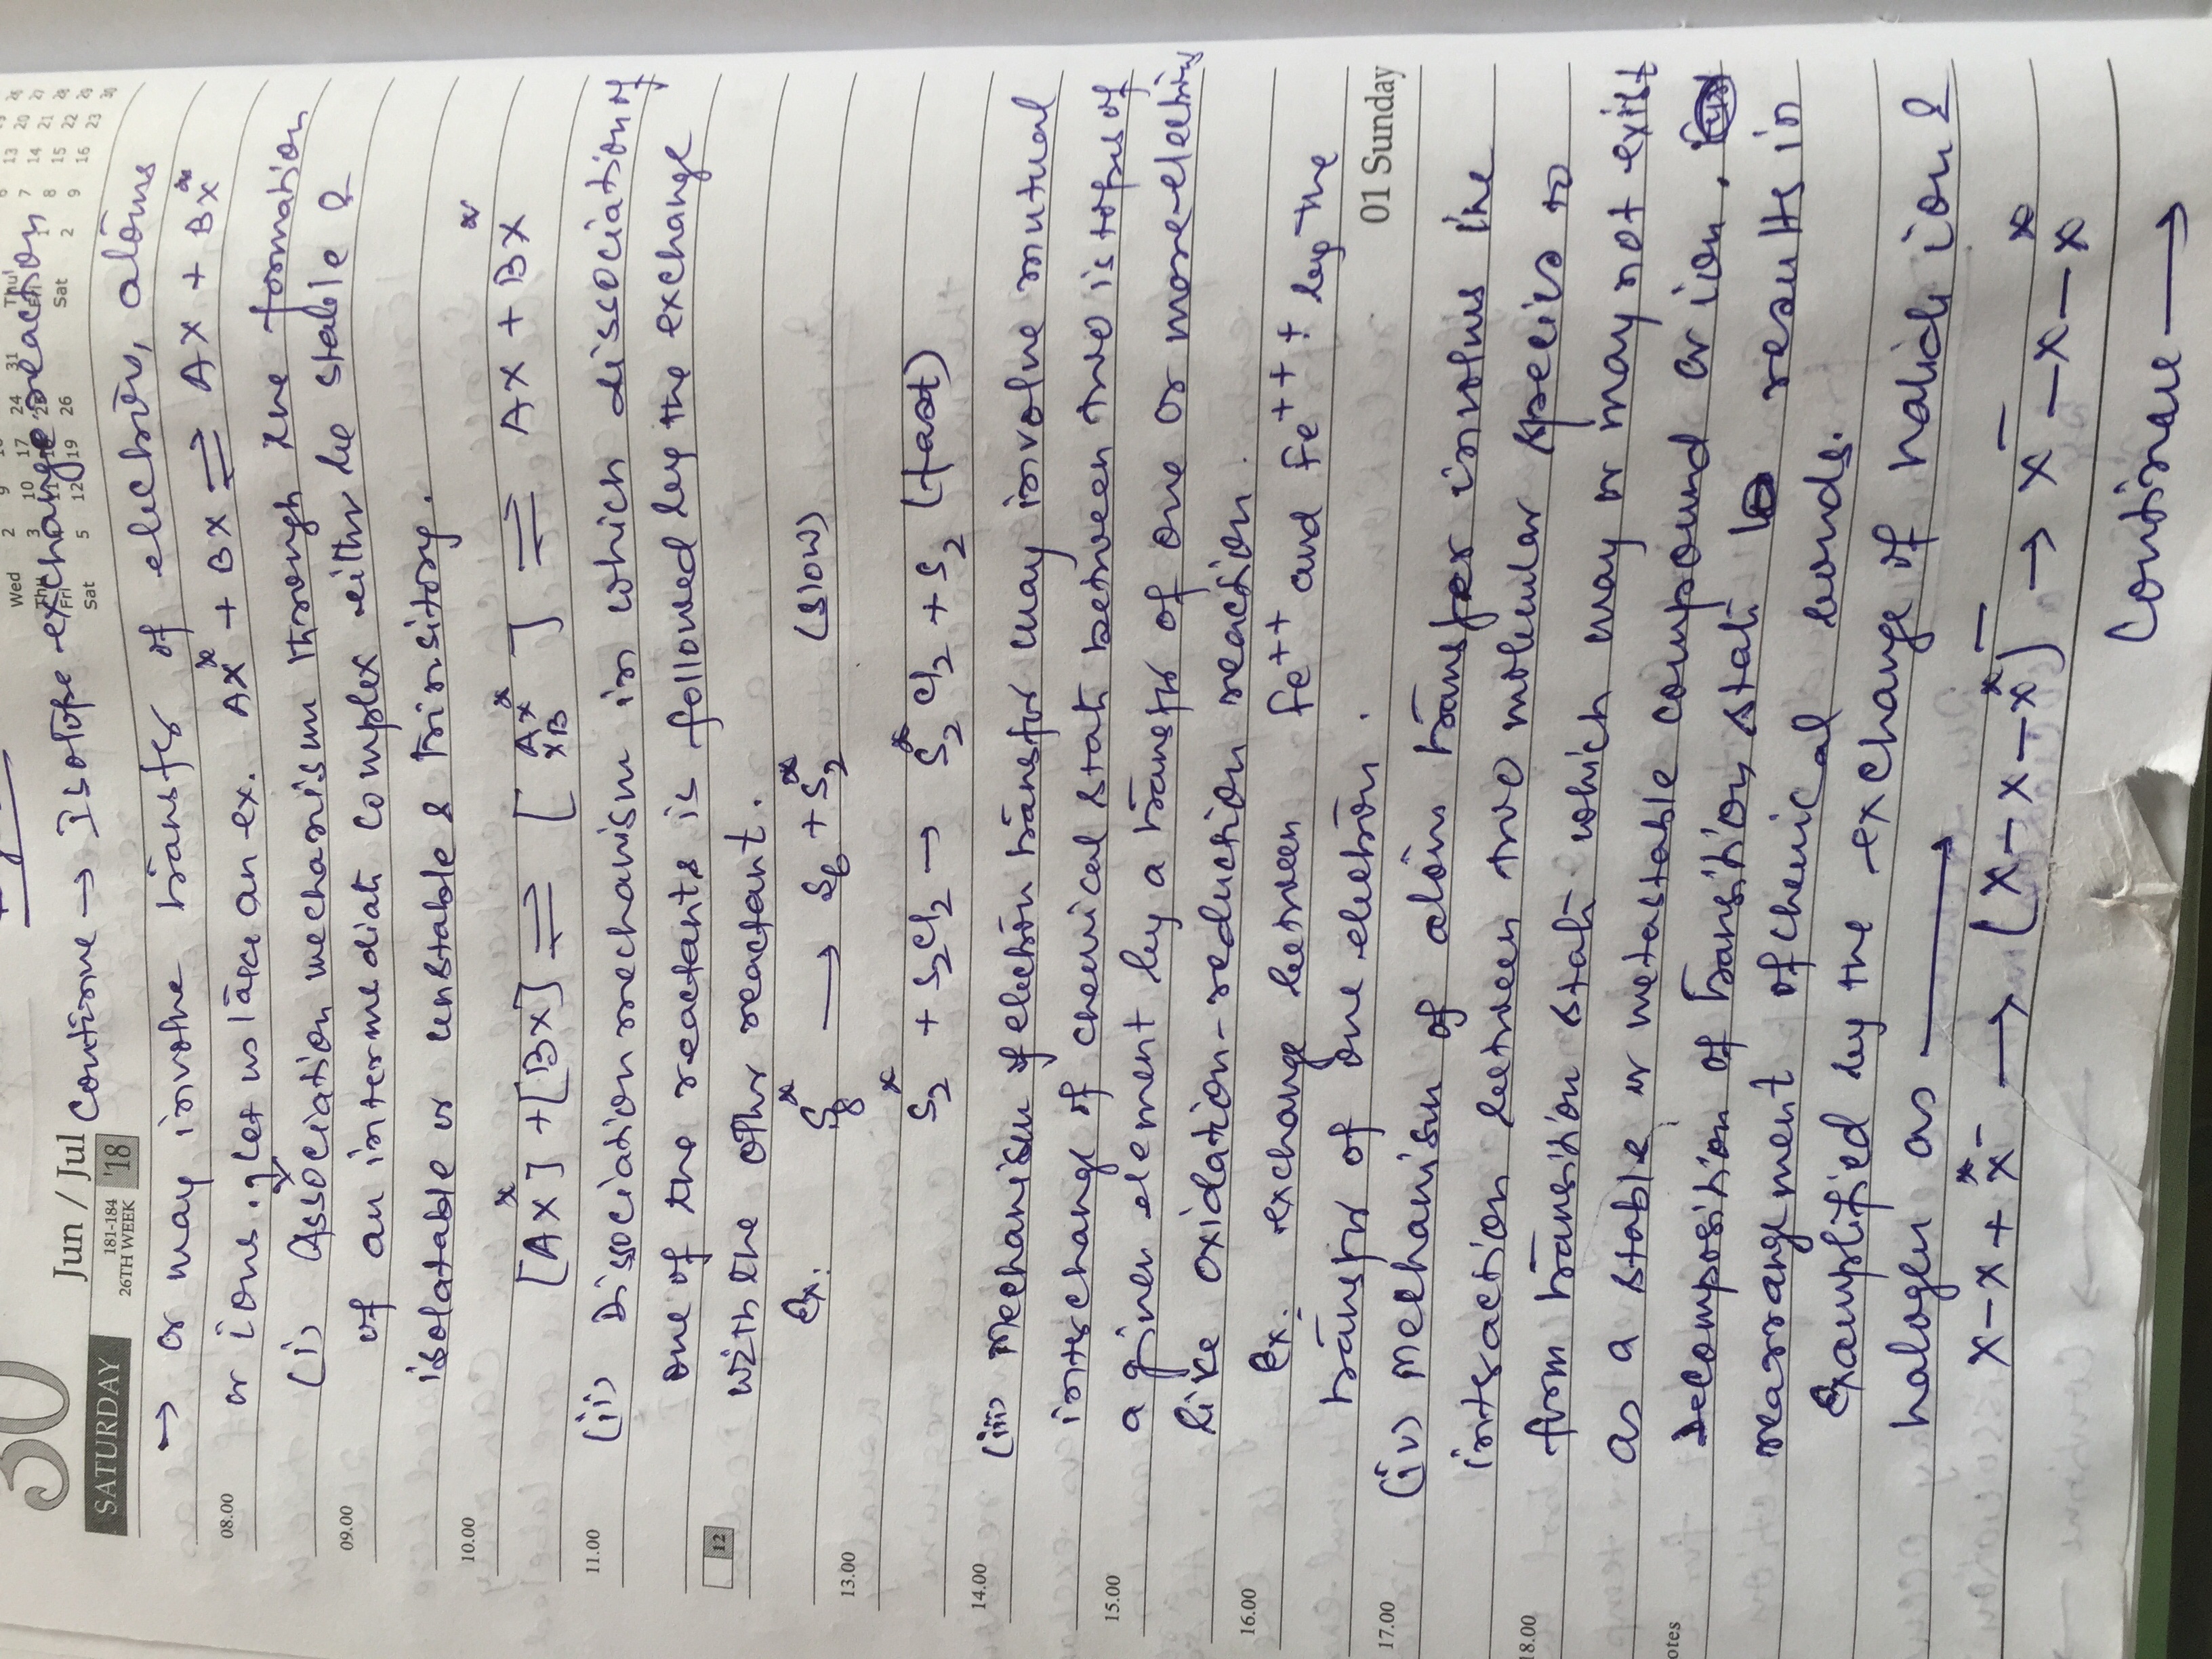 30
Jun / Jul
SATURDAY
181-184
26TH WEEK
'18
Continue → Isotope exchange reaction
→ or may involve transfer of electrōn, atōms
or ions. Let us take an ex. AX* + BX ⇌ AX + BX*
(i) Association mechanism through the formation
of an intermediatē complex either be stable &
isolatable or unstable & trinsitory.
[AX*] + [BX] ⇌ [AX* XB] ⇌ AX + BX*
(ii) Dissociation mechanism in which dissociation of
one of the reactants is followed by the exchange
with the other reactant.
Ex. S8* → S6 + S2* (slow)
S2* + S2Cl2 → S2*Cl2 + S2 (fast)
(iii) Mechanism of electrōn trānsfer may involve mutual
interchange of chemical statē between two isotopes of
a given element by a trānsfer of one or more electrōns
like oxidation-reduction reaction.
Ex. exchange between Fe++ and Fe+++ by the
trānsfer of one electrōn.
01 Sunday
(iv) Mechanism of atōm trānsfer involves the
interaction between two molecular species to
form trānsition statē which may or may not exist
as a stable or metastable compound or ion.
Decomposition of trānsition statē results in
rearrangement of chemical bonds.
Examplified by the exchange of halidē ion &
halogen as →
X–X + X*– → [X–X–X*]– → X– –X–X*
Continue →
08.00
09.00
10.00
11.00
12
13.00
14.00
15.00
16.00
17.00
18.00
otes